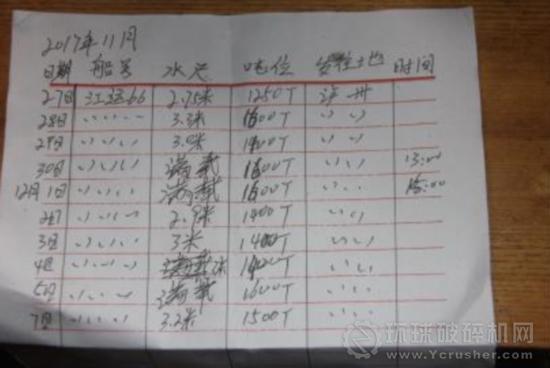 2017年11月
日期 船号 水尺 吨位 发往土地 时间
27日 江运66 2.75米 1250T 泸州
28日 、、、、 3.3米 1600T 、、、
29日 、、、、 3.0米 1400T 、、、
30日 、、、、 满载 1600T 、、、 13:00
12月1日 、、、、 满载 1600T 、、、 15:00
2日 、、、、 2.9米 1400T 、、、
3日 、、、、 3米 1400T 、、、
4日 、、、、 1400T 、、、
5日 、、、、 满载 1600T 、、、
7日 、、、、 3.2米 1500T 、、、
环球破碎机网
www.Ycrusher.com